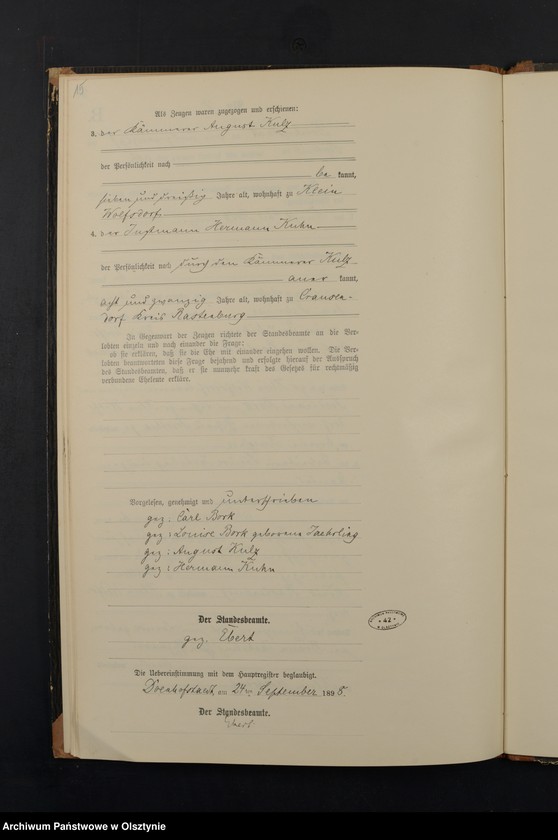 15
Als Zeugen waren zugezogen und erschienen:
3. der Kämmerer August Kulz
der Persönlichkeit nach
be kannt,
sieben und dreißig Jahre alt, wohnhaft zu Klein
Wolfsdorf
4. der Instmann Hermann Kuhn
der Persönlichkeit nach durch den Kämmerer Kulz
aner kannt,
acht und zwanzig Jahre alt, wohnhaft zu
dorf Kreis Rastenburg
In Gegenwart der Zeugen richtete der Standesbeamte an die Ver-
lobten einzeln und nach einander die Frage:
ob sie erklären, daß sie die Ehe mit einander eingehen wollen. Die Ver-
lobten beantworteten diese Frage bejahend und erfolgte hierauf der Ausspruch
des Standesbeamten, daß er sie nunmehr kraft des Gesetzes für rechtmäßig
verbundene Eheleute erkläre.
Vorgelesen, genehmigt und unterschrieben
gez. Carl Bork
gez: Louise Bork geborene
gez: August Kulz
gez: Hermann Kuhn
Der Standesbeamte.
gez. Ebert
Die Uebereinstimmung mit dem Hauptregister beglaubigt.
Doenhofstaedt, am 24ten September 1898.
Der Standesbeamte.
Ebert
42
Archiwum Państwowe w Olsztynie